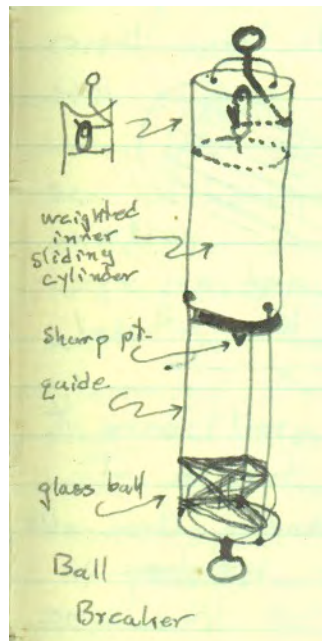 weighted
inner
sliding
cylinder
sharp pt-
guide
glass ball
Ball
Breaker